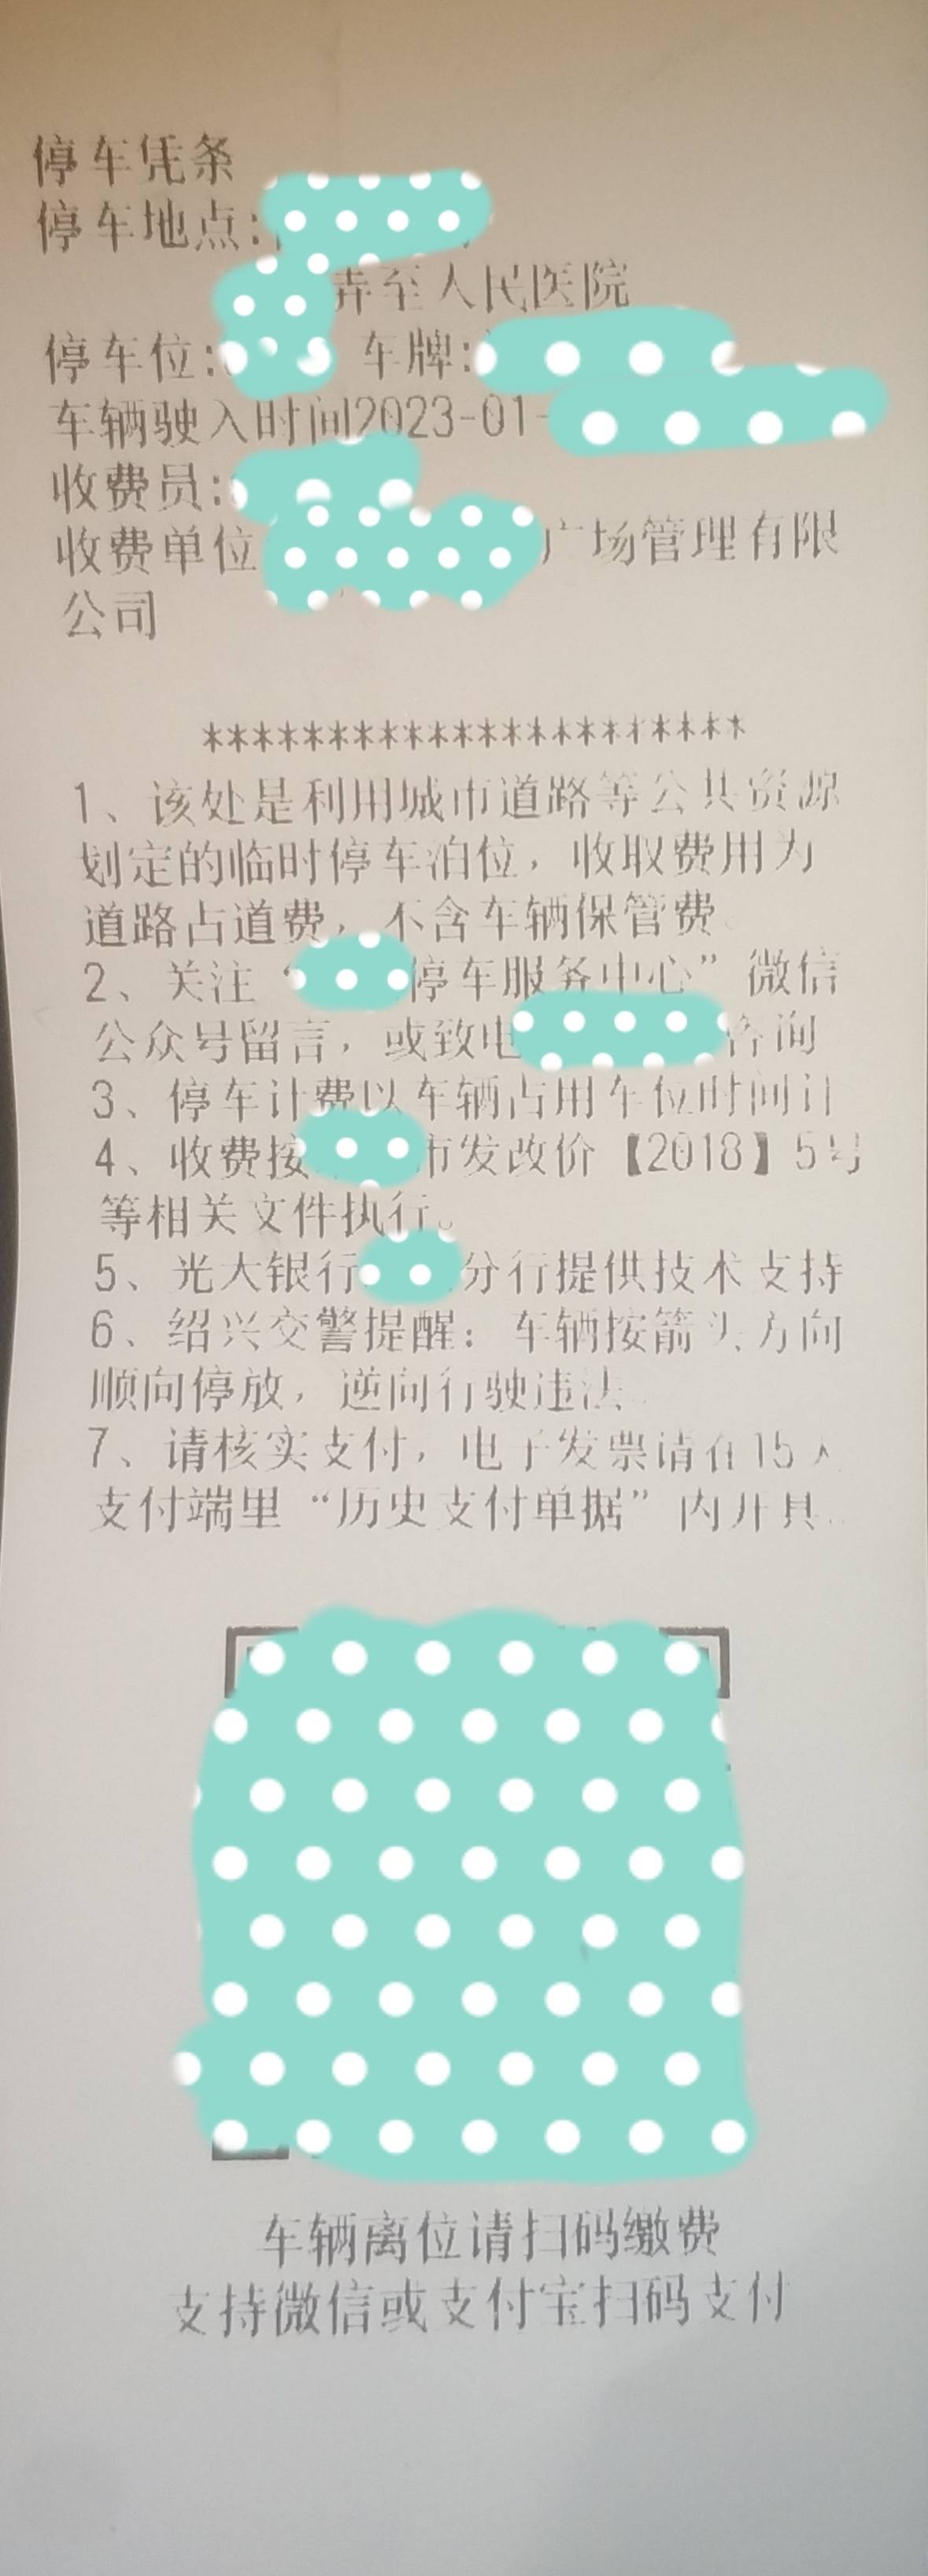 停车凭条
停车地点:
弄至人民医院
停车位: 车牌:
车辆驶入时间2023-01-
收费员:
收费单位 广场管理有限
公司
**********************
1、该处是利用城市道路等公共资源
划定的临时停车泊位，收取费用为
道路占道费，不含车辆保管费
2、关注“ 停车服务中心”微信
公众号留言，或致电 咨询
3、停车计费以车辆占用车位时间计
4、收费按 市发改价【2018】5号
等相关文件执行。
5、光大银行 分行提供技术支持
6、绍兴交警提醒：车辆按箭头方向
顺向停放，逆向行驶违法
7、请核实支付，电子发票请在15天
支付端里“历史支付单据”内开具
车辆离位请扫码缴费
支持微信或支付宝扫码支付